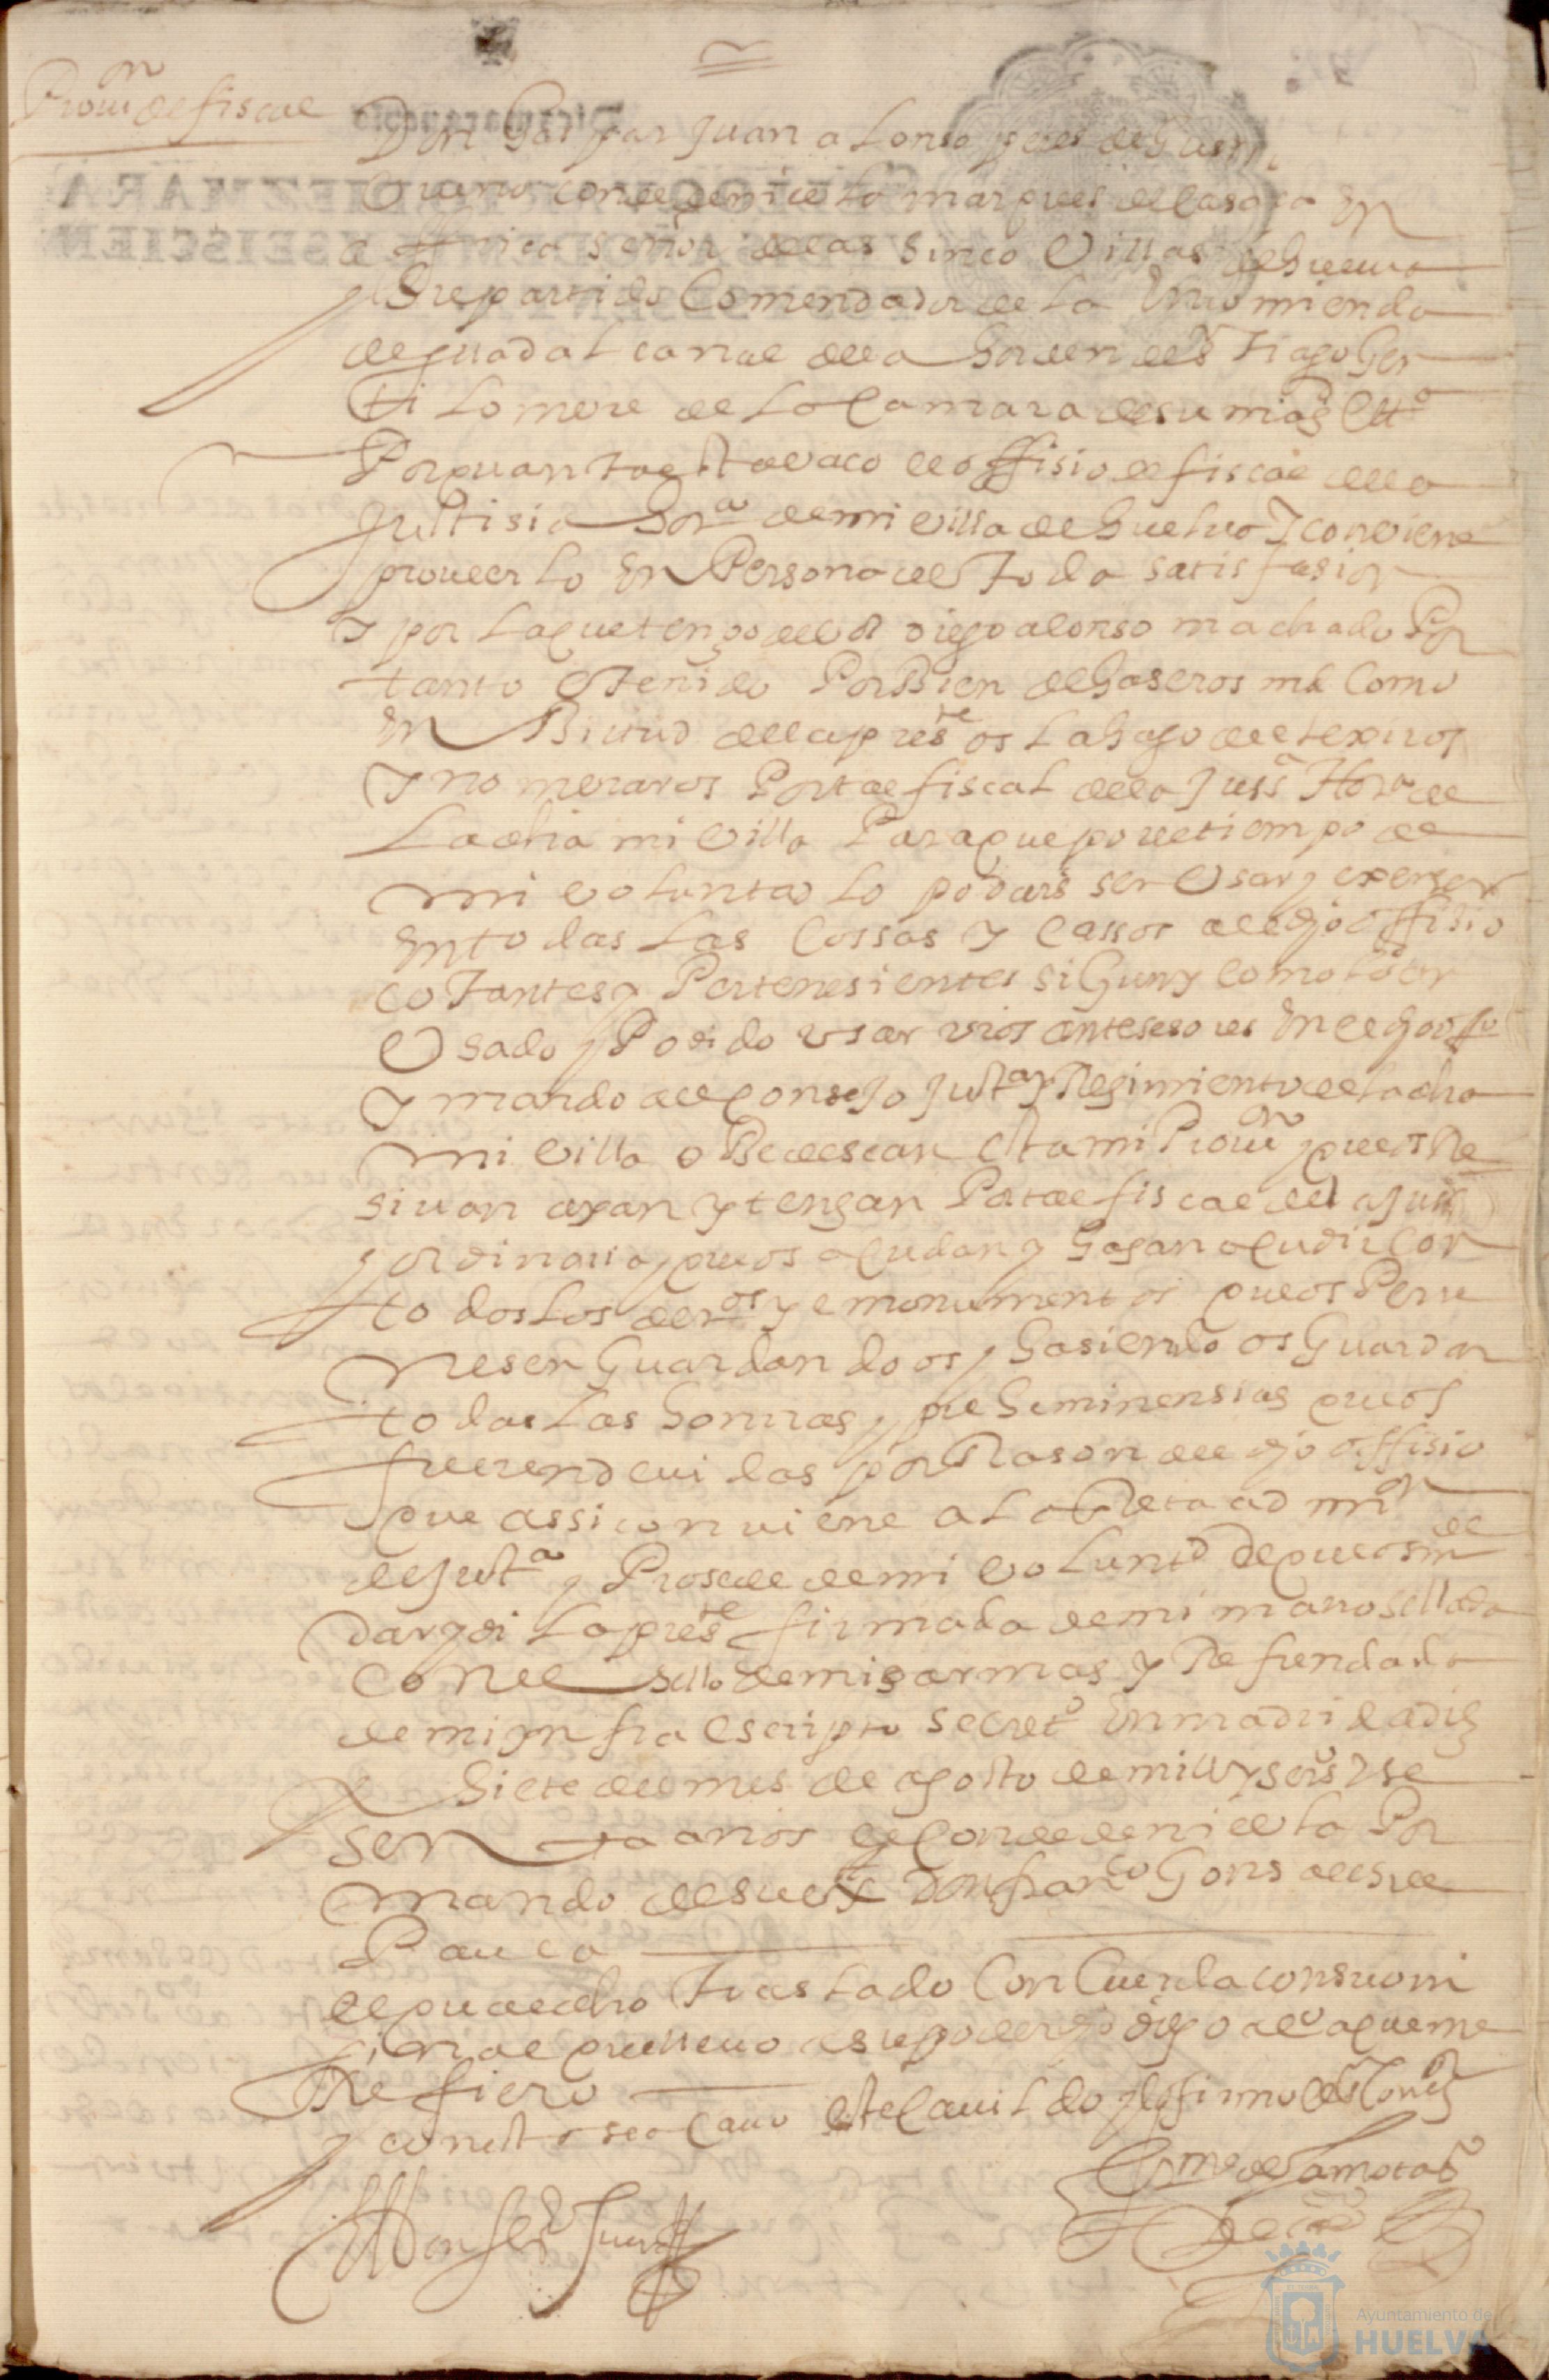 Prouion de fiscal
Don Gaspar Juan alonso peres de Gusm
Bueno conde de niebla marques de Casasa en
a ffrica señor de las Sinco Villas de Huelua
y Su partido Comendador de la Encomienda
de guadalcanal de la horden de S Tiago Gen
til hombre de la Camara de su magd Ettª
Por quanto esta vaco el offisio de fiscal de la
Justisia horª de mi villa de Huelva y conviene
proueerlo en Persona de toda satisfasion
y por la que tengo de vos diego alonso machado Por
tanto e tenido Por Bien de haseros md Como
en Birtud de la preste os la hago de elexiros
y nombraros Por tal fiscal de la Jussª Horª de
La dha mi villa Para que por el tiempo de
mi voluntad lo podais ser Usar y exerser
en todas las Cossas y Cassos al dho offisio
tocantes y Pertenesientes sigun y como lo an
Usado y Podido usar vros antesesores en el dho offº
y mando al Consejo Justª y Regimiento de la dha
mi villa obedescan esta mi Prouon y que os Re
siuan ayan y tengan Por tal fiscal de la Jussª
ordinaria y que os acudan y hagan acudir Con
todos los deros y emolumentos que os Perte
nesen Guardandoos y hasiendo os Guardar
todas las honrras y preheminensias que os
fueren deuidas por Rason del dho offisio
que assi conuiene a la Reta admon
de Justª y Prosede de mi voluntd de que os mde
dar y di la preste firmada de mi mano sellada
con el sello de mis armas y Refrendada
de mi ynfraescripto secretº En madrid a dies
y siete del mes de agosto de mill y seisº y se
senta años el Conde de niebla Por
mando de su exª Don franco Gons de
Pauca
el qual dho traslado Concuerda con su ori
jinal que lleuo a su poder el dho digo alº a que me
Refiero
y con esto se acauo este Cauildo y lo firmo